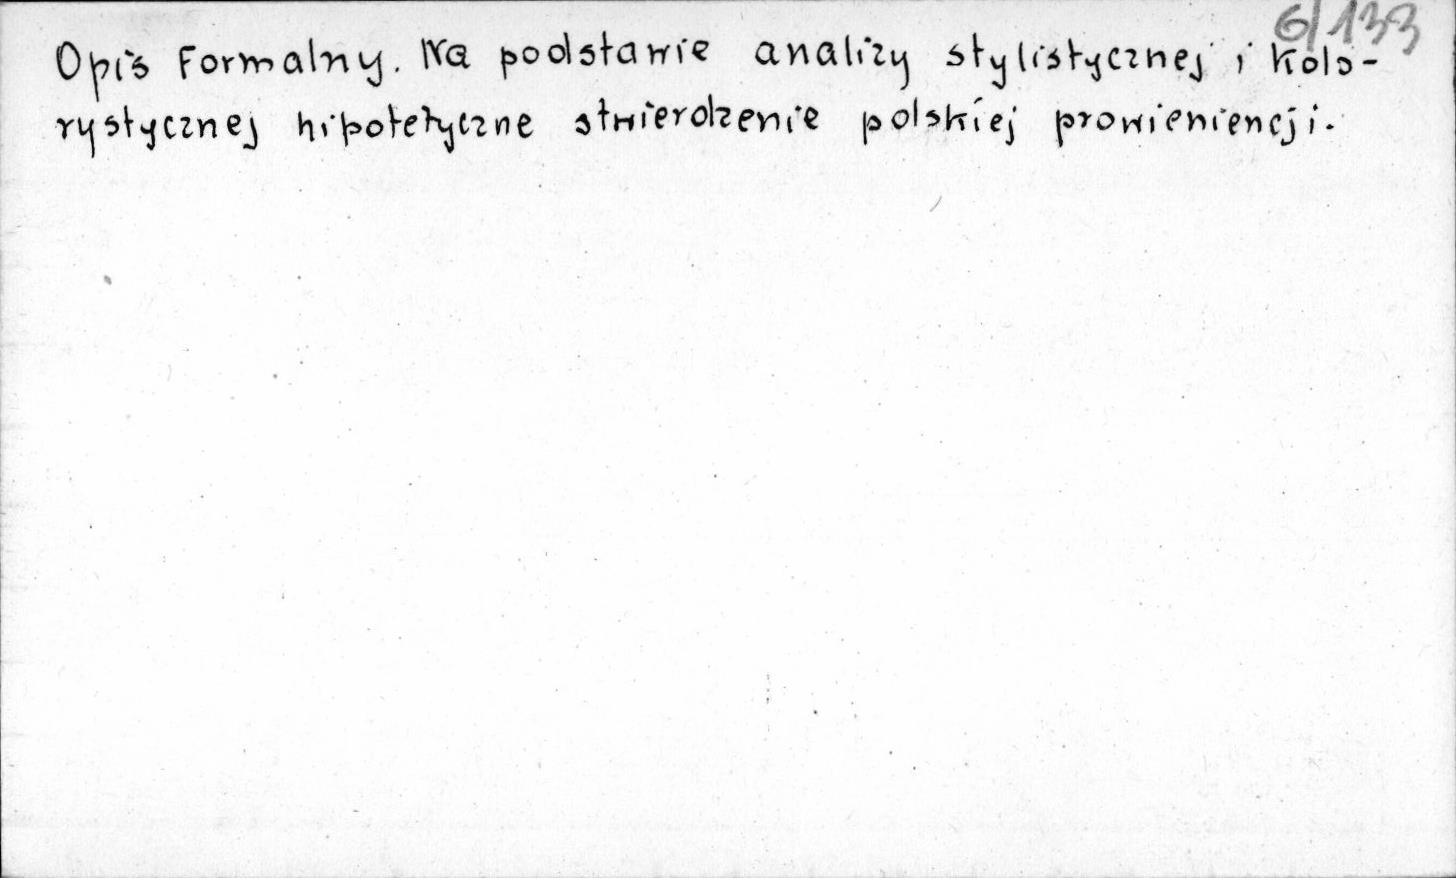 6/133
Opis formalny. Na podstawie analizy stylistycznej i kolo-
rystycznej hipotetyczne stwierdzenie polskiej prowieniencji.